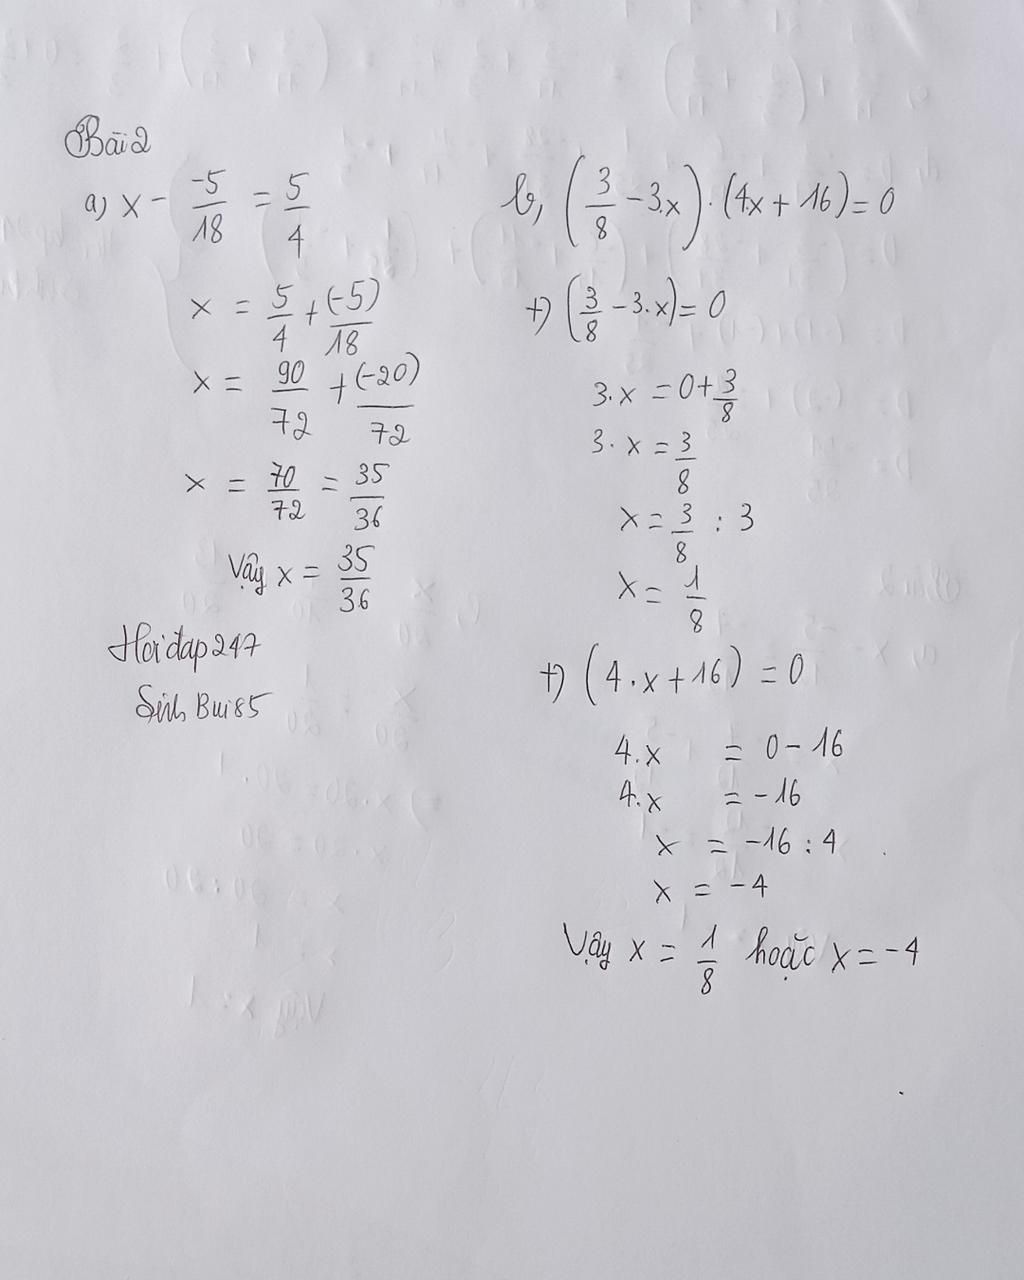 Bài 2
a) x - -5/18 = 5/4
x = 5/4 + (-5)/18
x = 90/72 + (-20)/72
x = 70/72 = 35/36
Vậy x = 35/36
Hoidap247
Sinh Bui85
b, (3/8 - 3.x) . (4x + 16) = 0
+) (3/8 - 3.x) = 0
3.x = 0 + 3/8
3.x = 3/8
x = 3/8 : 3
x = 1/8
+) (4.x + 16) = 0
4.x = 0 - 16
4.x = -16
x = -16 : 4
x = -4
Vậy x = 1/8 hoặc x = -4